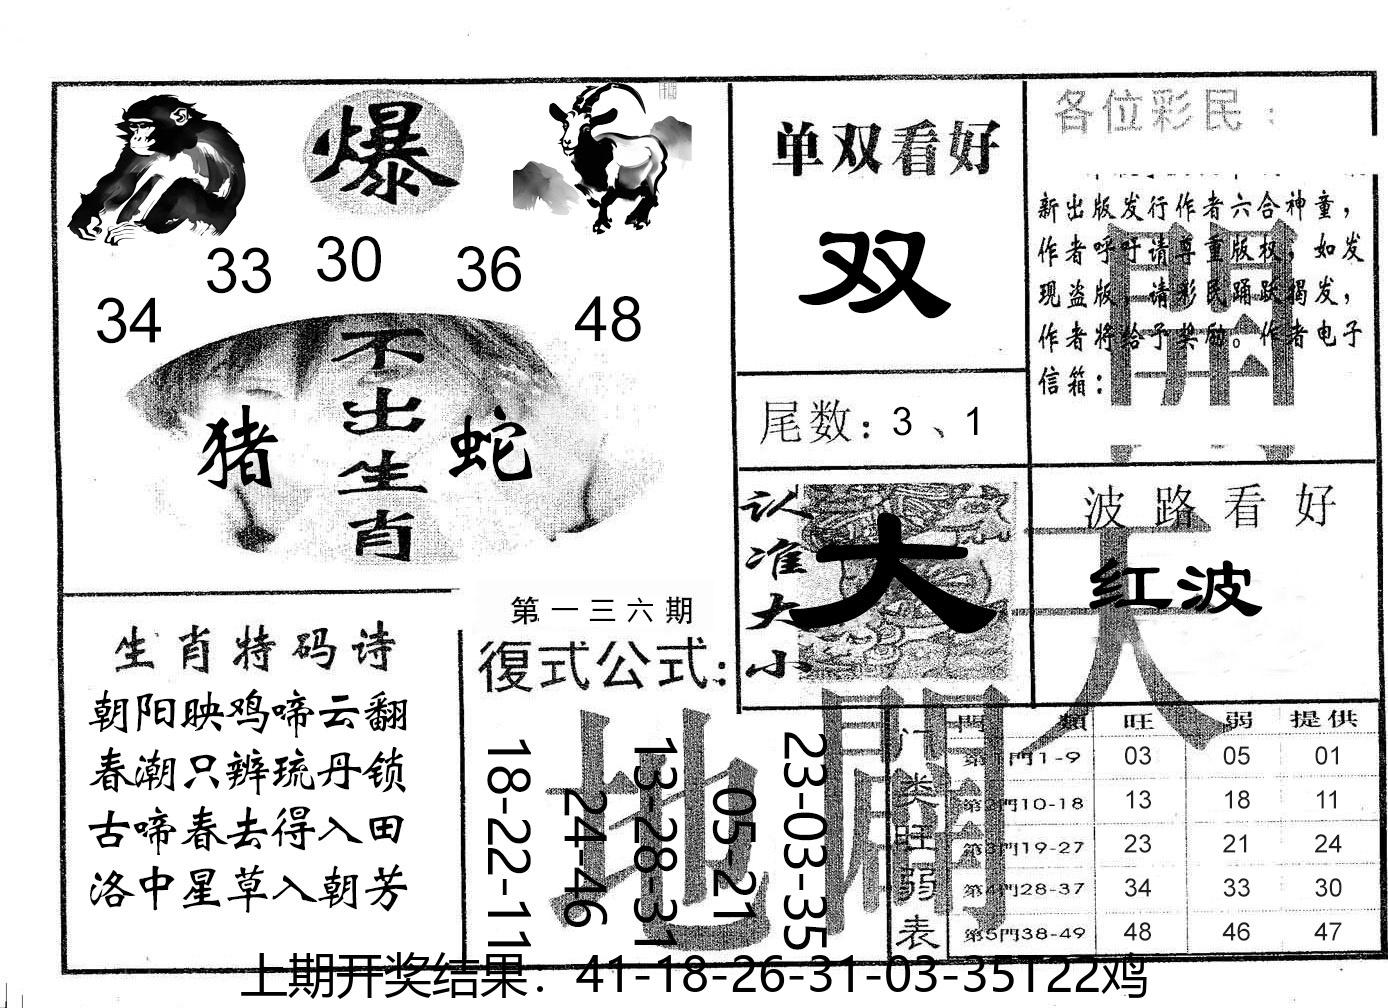 爆
33 30 36
34 48
不出生肖
猪 蛇
生肖特码诗
朝阳映鸡啼云翻
春潮只辨琉丹锁
古啼春去得入田
洛中星草入朝芳
第一三六期
復式公式：
18-22-11
24-46
13-28-31
05-21
23-03-35
单双看好
双
尾数：3、1
认准大小
大
各位彩民：
新出版发行作者六合神童，
作者呼吁请尊重版权，如发
现盗版，请彩民踊跃揭发，
作者将给予奖励。作者电子
信箱：
波路看好
红波
天
地
開
門類 旺 弱 提供
门类旺弱表
第1門1-9 03 05 01
第2門10-18 13 18 11
第3門19-27 23 21 24
第4門28-37 34 33 30
第5門38-49 48 46 47
上期开奖结果：41-18-26-31-03-35T22鸡